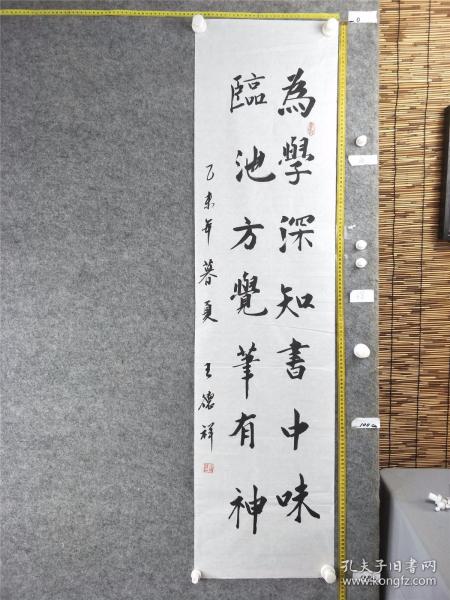 為學深知書中味
臨池方覺筆有神
乙未年暮夏 王德祥
0
100 cm
孔夫子旧书网
www.kongfz.com